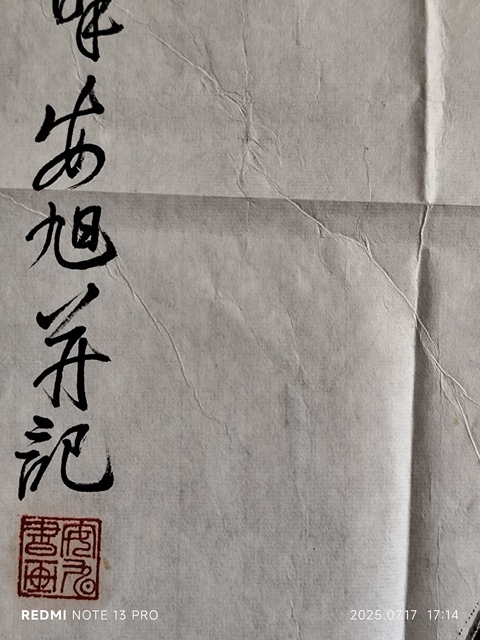 安旭並記
REDMI NOTE 13 PRO
2025.07.17 17:14